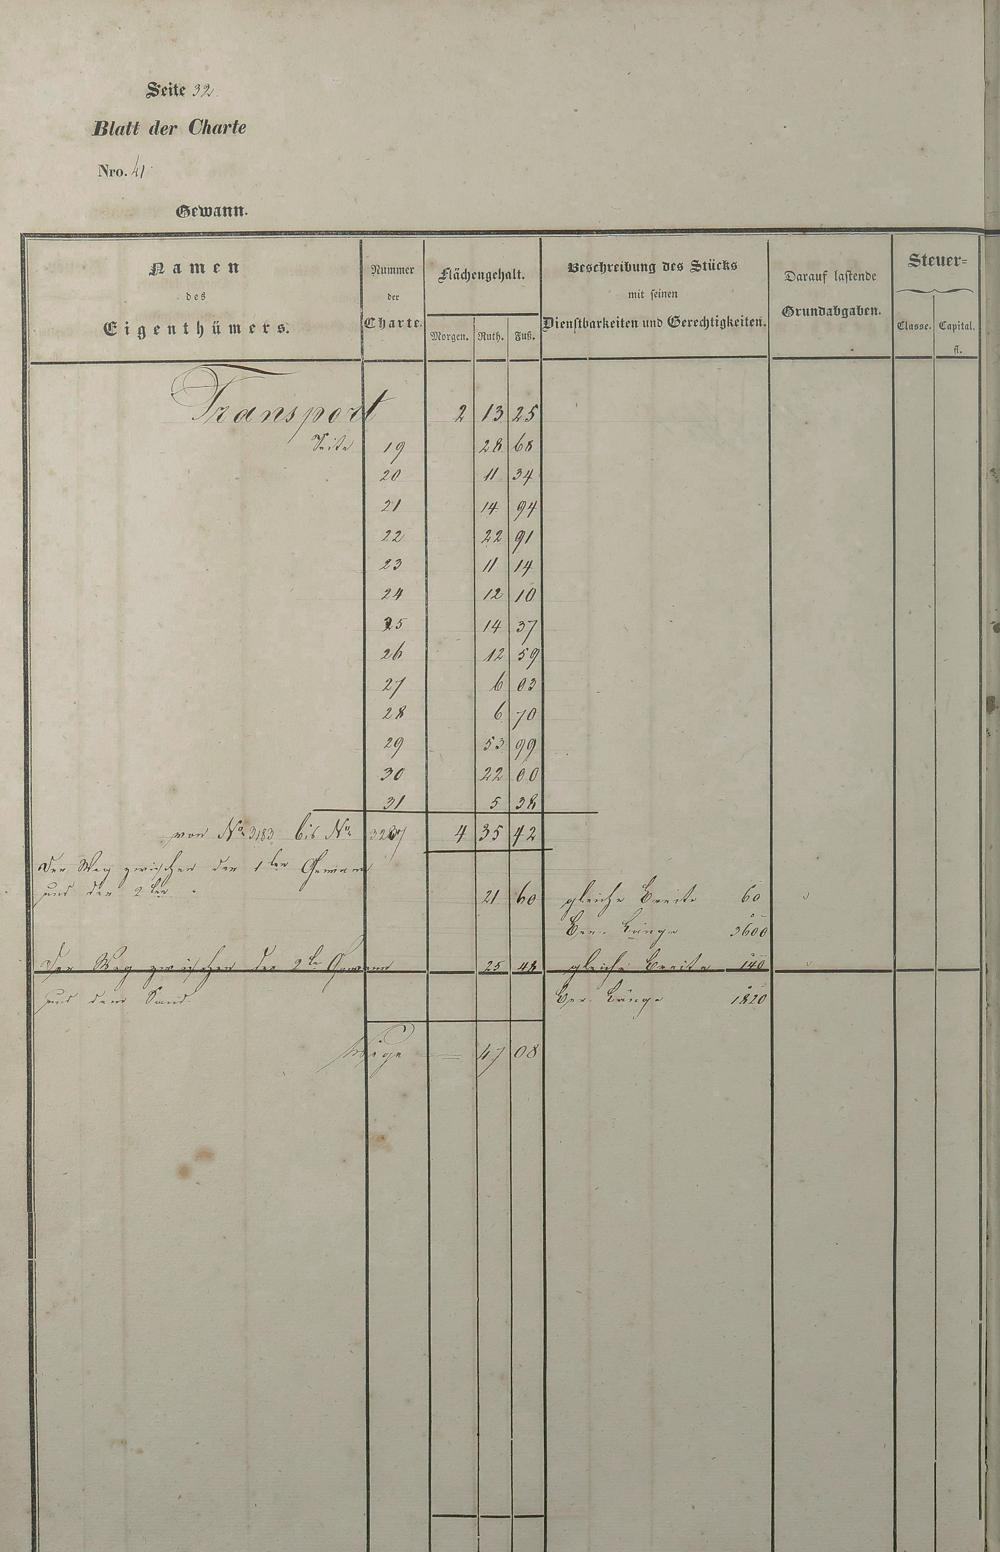 Seite 32
Blatt der Charte
Nro. 41
Gewann.
Namen des Eigenthümers.
Nummer der Charte.
Flächengehalt.
Morgen. Ruth. Fuß.
Beschreibung des Stücks mit seinen Dienstbarkeiten und Gerechtigkeiten.
Darauf lastende Grundabgaben.
Steuer=
Classe. Capital.
fl.
Transport 2 13 25
Seite 19 28 68
20 11 34
21 14 94
22 22 91
23 11 14
24 12 10
25 14 37
26 12 59
27 6 03
28 6 70
29 53 99
30 22 00
31 5 38
von No. 3183 bis No. 3267 4 35 42
Der Weg zwischen der 1ten Gewann
und der 2ten 21 60 gleiche Breite 60
Ber. Länge 3600
Der Weg zwischen der 2te Gewann 25 48 gleiche Breite 140
und dem Sand Ber. Länge 1820
Wege 47 08